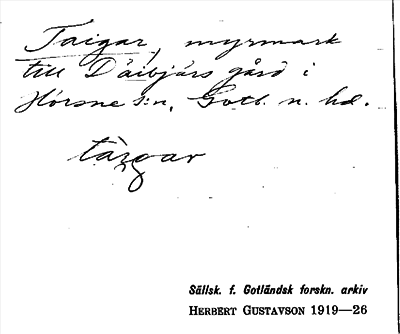 Taigar, myrmark
till Dåibjårs gård i
Hörsne s:n, Gotl. n. hd.
tàrgar
Sällsk. f. Gotländsk forskn. arkiv
HERBERT GUSTAVSON 1919—26